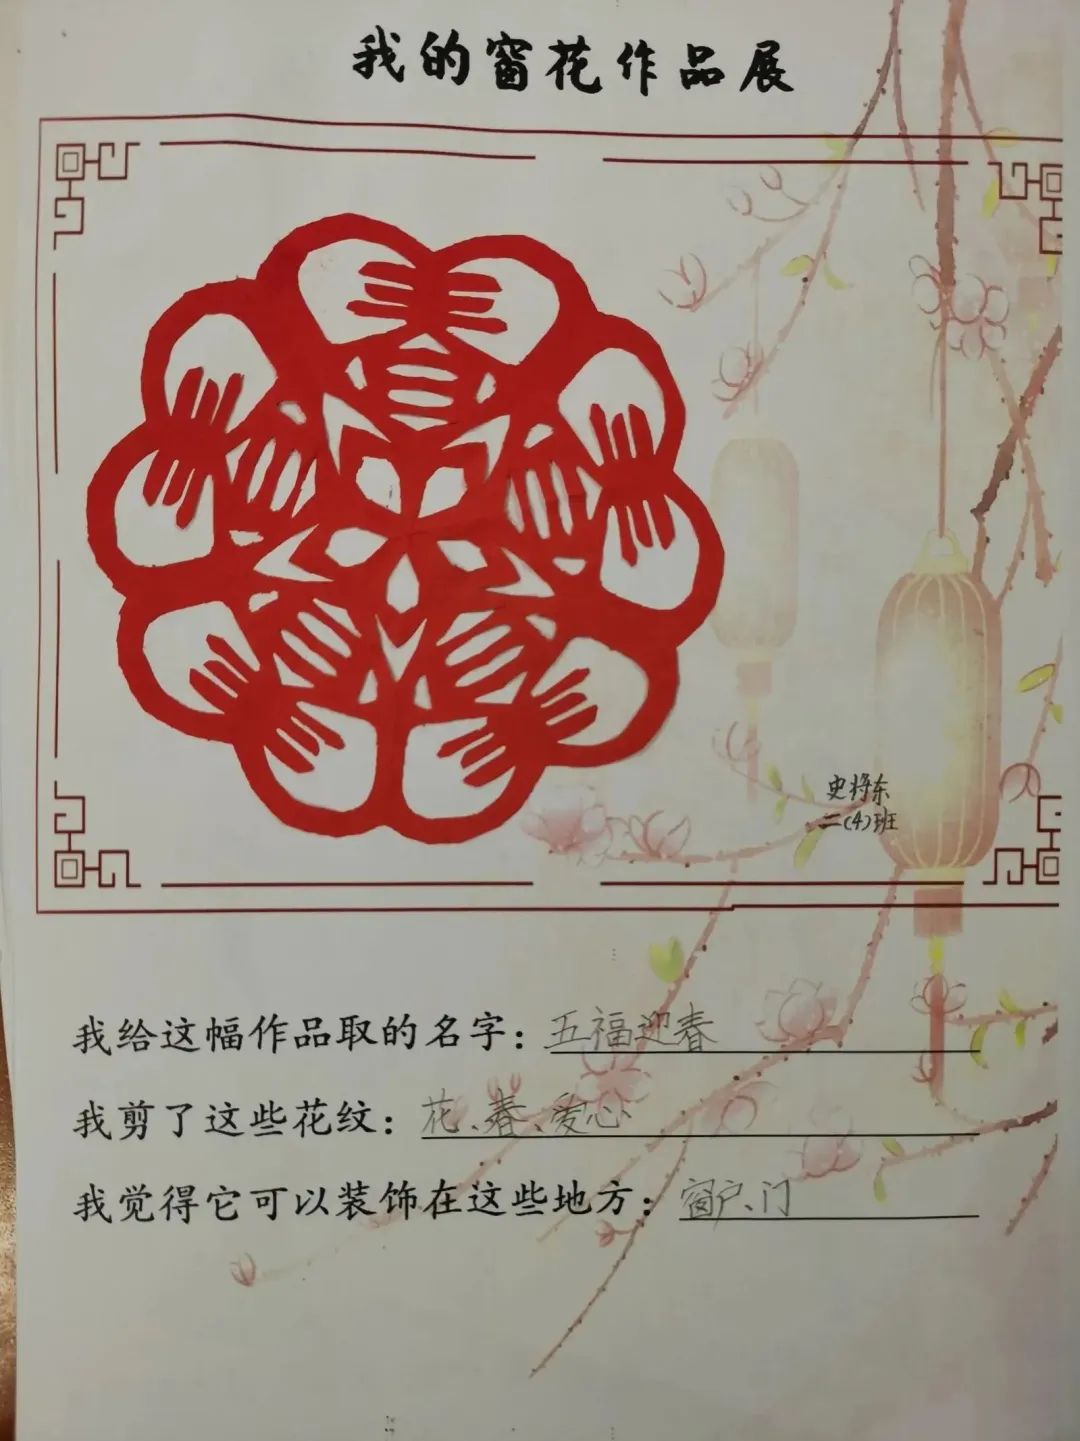 我的窗花作品展
史将东
二(4)班
我给这幅作品取的名字：五福迎春
我剪了这些花纹：花、春、爱心
我觉得它可以装饰在这些地方：窗户、门